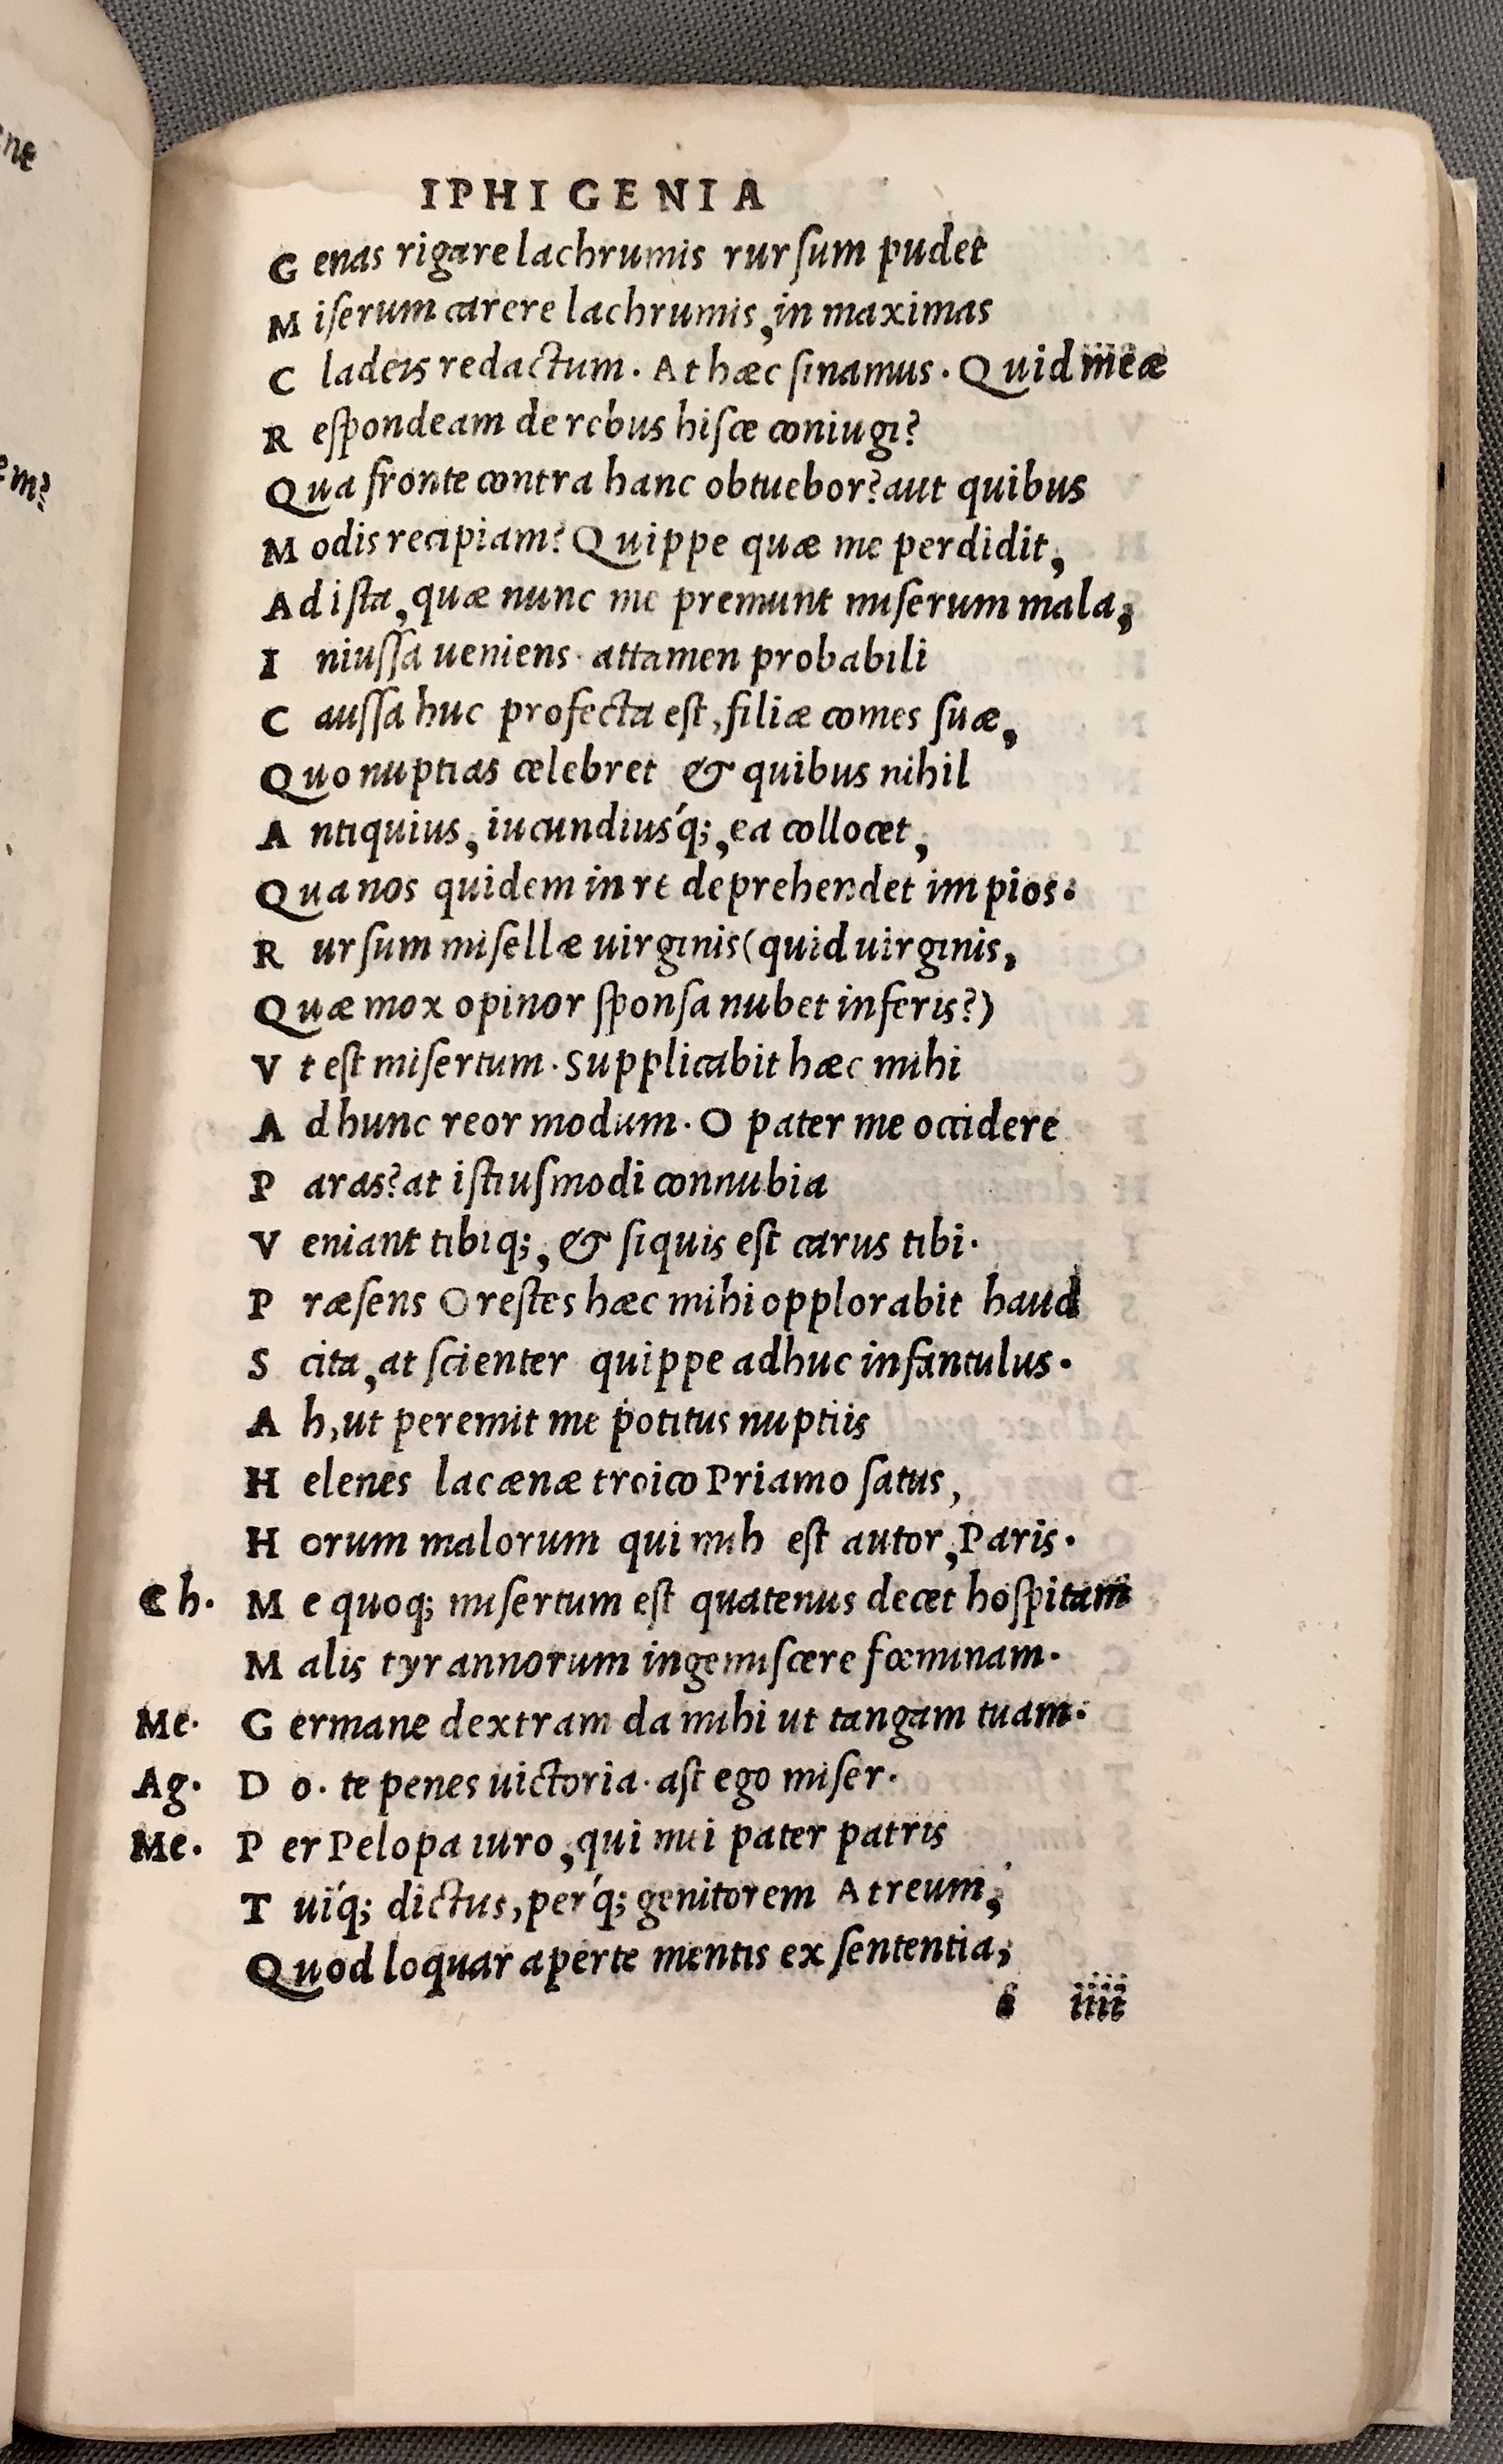 IPHIGENIA
Genas rigare lachrumis rursum pudet
Miserum carere lachrumis, in maximas
Cladeis redactum. At hæc sinamus. Quid meæ
Respondeam de rebus hisce coniugi?
Qua fronte contra hanc obtuebor? aut quibus
Modis recipiam? Quippe quæ me perdidit,
Ad ista, quæ nunc me premunt miserum mala,
Iniussa ueniens. attamen probabili
Caussa huc profecta est, filiæ comes suæ,
Quo nuptias celebret & quibus nihil
Antiquius, iucundiusq́;, ea collocet,
Qua nos quidem in re deprehendet impios.
Rursum misellæ uirginis (quid uirginis,
Quæ mox opinor sponsa nubet inferis?)
Vt est misertum. Supplicabit hæc mihi
Ad hunc reor modum. O pater me occidere
Paras? at istiusmodi connubia
Veniant tibiq;, & siquis est carus tibi.
Præsens Orestes hæc mihi opplorabit haud
Scita, at scienter quippe adhuc infantulus.
Ah, ut peremit me potitus nuptiis
Helenes lacænæ troico Priamo satus,
Horum malorum qui mihi est autor, Paris.
Ch. Me quoq; misertum est quatenus decet hospitam
Malis tyrannorum ingemiscere fœminam.
Me. Germane dextram da mihi ut tangam tuam.
Ag. Do. te penes uictoria. ast ego miser.
Me. Per Pelopa iuro, qui mei pater patris
Tuiq́; dictus, perq́; genitorem Atreum,
Quod loquar aperte mentis ex sententia,
iiii